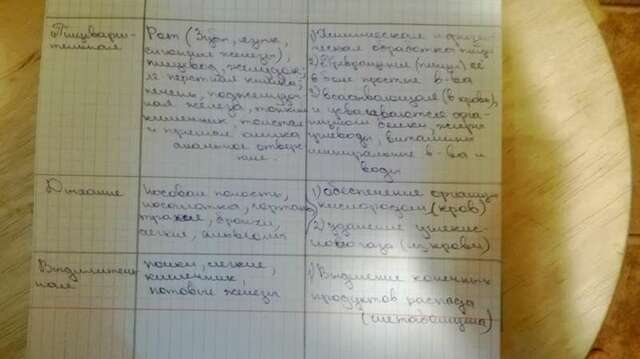 Пищевари-
тельная
Рот (Зубы, язык,
слюнные железы),
пищевод, желудок,
12 перстная кишка,
печень, поджелудоч-
ная железа, тонкий
кишечник, толстая
и прямая кишка
анальное отверс-
тие.
1) Химическая и физи-
ческая обработка пищи
2) Превращение (пищи) её
в более простые в-ва
3) Всасывающая (в кровь),
и усваиваются орга-
низмом белки, жиры
углеводы, витамины
минеральные в-ва и
воды
Дыхание
носовая полость,
носоглотка, гортань
трахея, бронхи,
легкие, альвеолы
1) обеспечение организма
кислородом (кровь)
2) удаление углекис-
лого газа (из крови)
Выделитель-
ная
почки, легкие,
кишечник,
потовые железы
1) Выделение конечных
продуктов распада
(метаболизма)